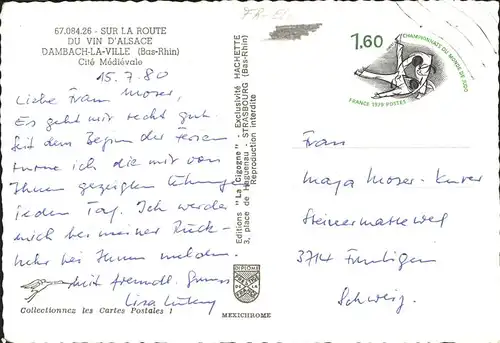 67.084.26 - SUR LA ROUTE
DU VIN D'ALSACE
DAMBACH-LA-VILLE (Bas-Rhin)
Cité Médiévale
15.7.80
Liebe Frau Moser,
Es geht mir recht gut.
Seit dem Beginn der Ferien
turne ich die mir von
Ihnen gezeigten Übungen
jeden Tag. Ich werde
mich bei meiner Rück-
kehr bei Ihnen melden.
Mit freundl. Gruss
Lisa
Collectionnez les Cartes Postales !
Editions "La Cigogne" - Exclusivité HACHETTE
3, place de Haguenau - STRASBOURG (Bas-Rhin)
Reproduction interdite
DIPLOME
MEXICHROME
1,60
CHAMPIONNATS DU MONDE DE JUDO
FRANCE 1979 POSTES
Frau
Maya Moser-
Steinermatteweg
3714 Frutigen
Schweiz.